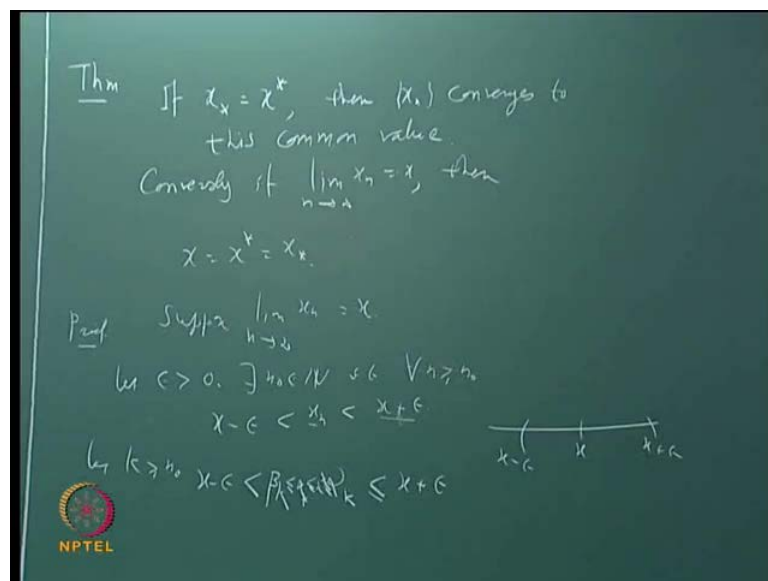 Thm If x_* = x^*, then (x_n) converges to
this common value.
Conversly if lim x_n = x, then
n→∞
x = x^* = x_*.
Proof. Suppx lim x_n = x.
n→∞
let ε > 0. ∃ n_0 ∈ ℕ s.t ∀ n ≥ n_0
x-ε < x_n < x+ε
x-ε x x+ε
let k ≥ n_0 x-ε < ≤ x+ε
NPTEL